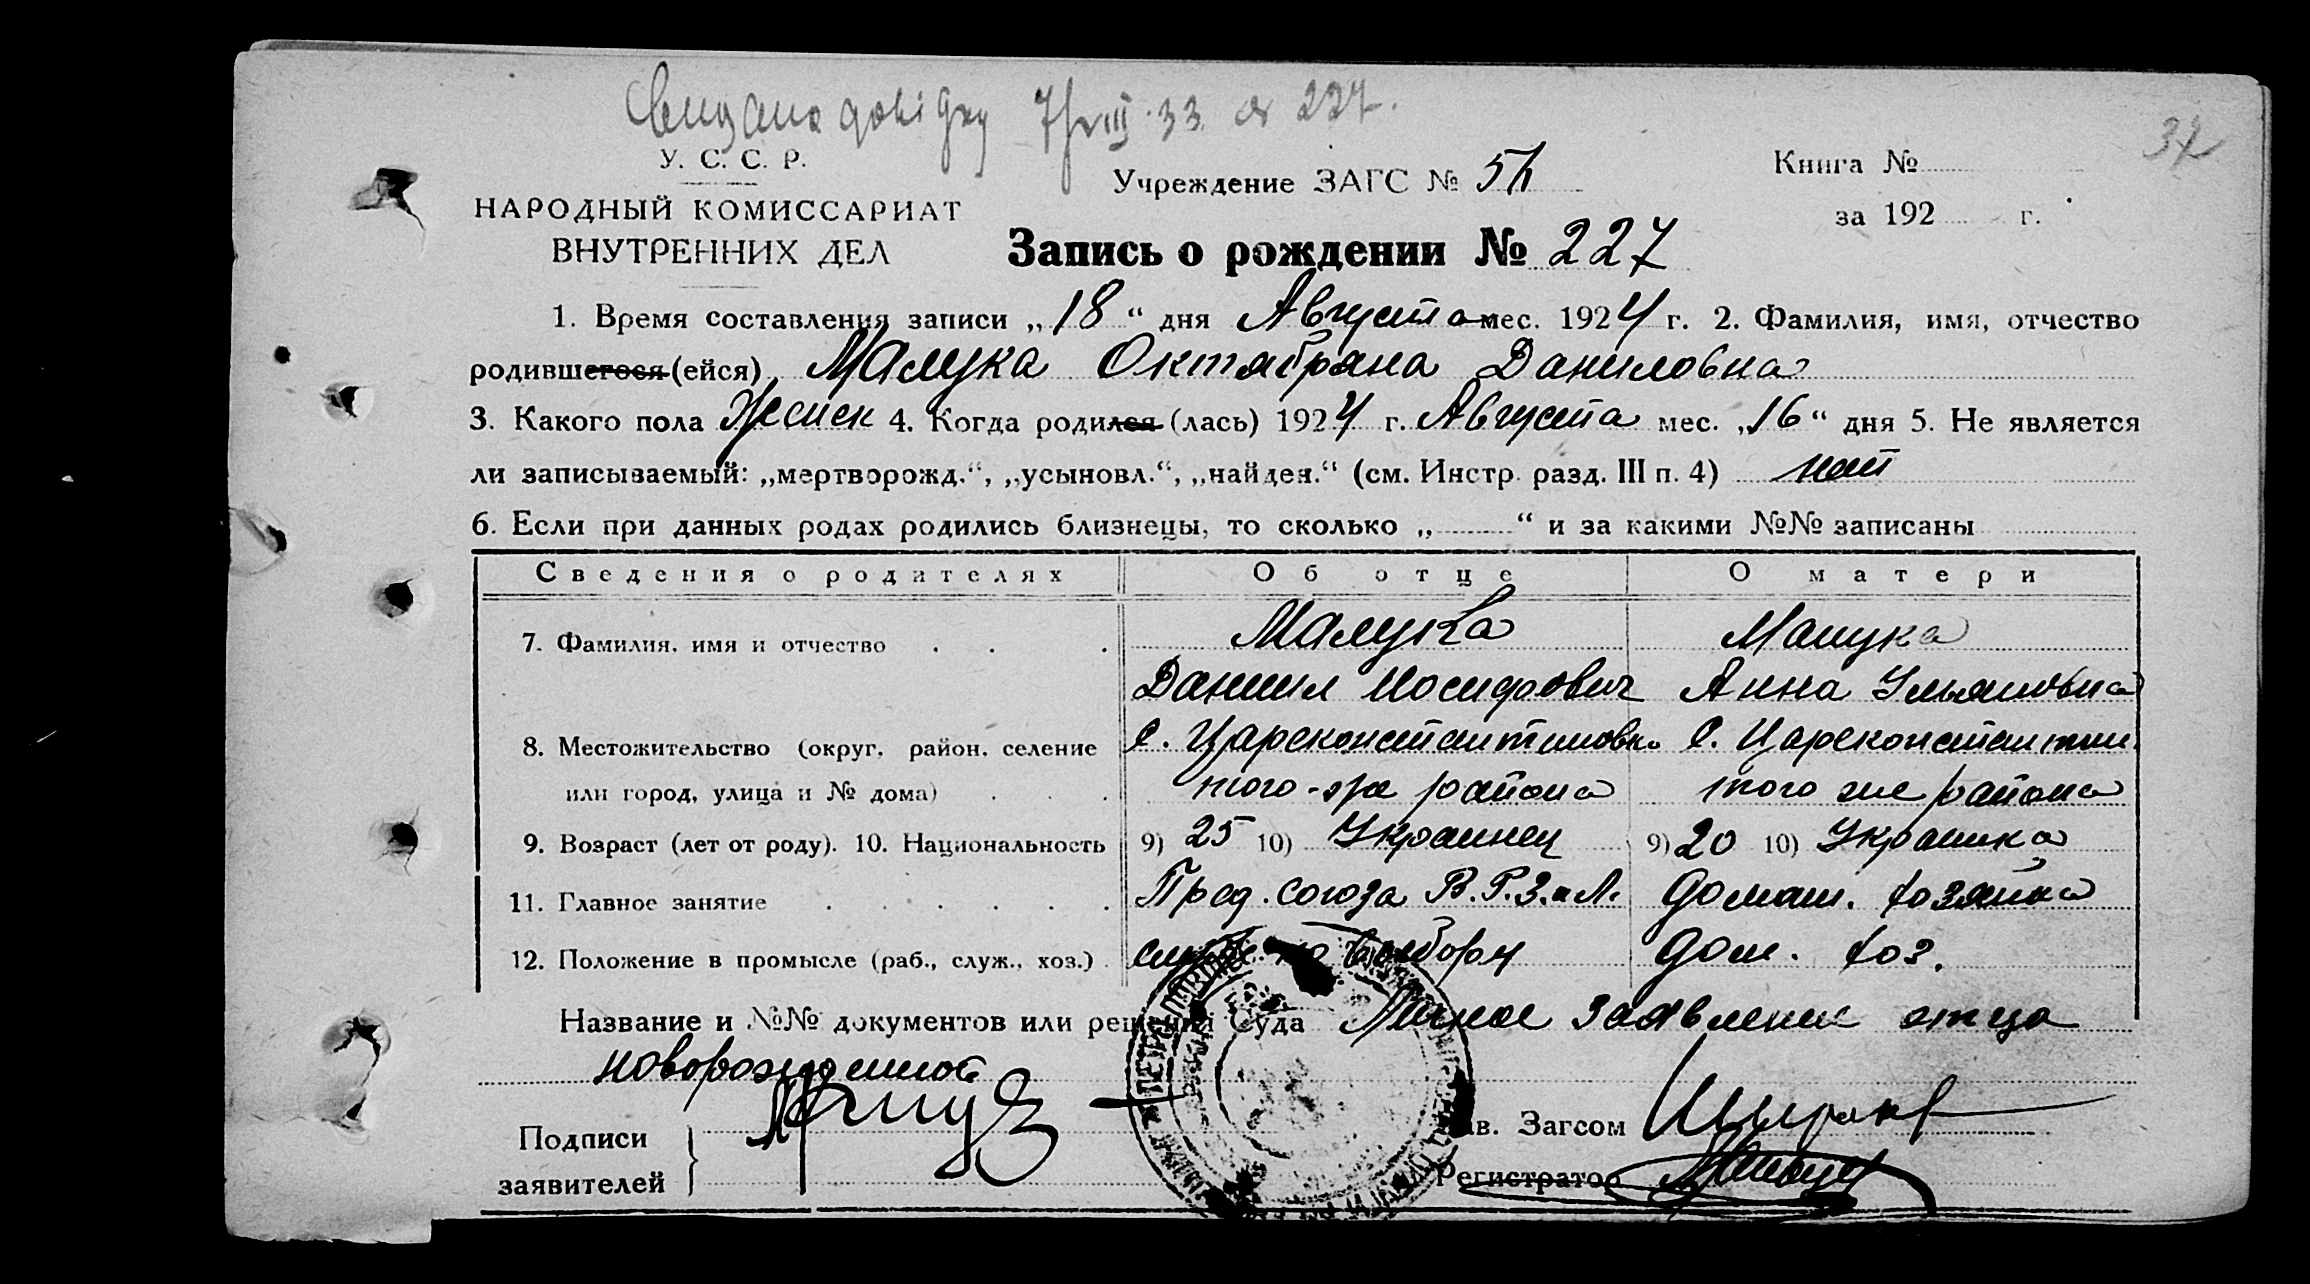 7/VIII 33. № 227.
37
У. С. С. Р.
НАРОДНЫЙ КОМИССАРИАТ
ВНУТРЕННИХ ДЕЛ
Учреждение ЗАГС №
Книга №
за 192 г.
Запись о рождении № 227
1. Время составления записи „18“ дня Августа мес. 1924 г. 2. Фамилия, имя, отчество
родившегося (ейся) Малука Октябрина Даниловна
3. Какого пола Женск 4. Когда родился (лась) 1924 г. Августа мес. „16“ дня 5. Не является
ли записываемый: „мертворожд.“, „усыновл.“, „найден.“ (см. Инстр. разд. III п. 4) нет
6. Если при данных родах родились близнецы, то сколько „ “ и за какими №№ записаны
Сведения о родителях Об отце О матери
7. Фамилия, имя и отчество Малука Малука
Даниил Иосифович Анна Ульяновна
8. Местожительство (округ, район, селение С. Царсконстантиновка С. Царсконстантин.
или город, улица и № дома) того-же района того же района
9. Возраст (лет от роду). 10. Национальность 9) 25 10) Украинец 9) 20 10) Украинка
11. Главное занятие Пред. союза В.Р.З. и Л. домаш. хозяйка
12. Положение в промысле (раб., служ., хоз.) служ. по выбору дом. хоз.
Название и №№ документов или решения Суда Личное заявление отца
новорожденной
Подписи
заявителей
Зав. Загсом
Регистратор